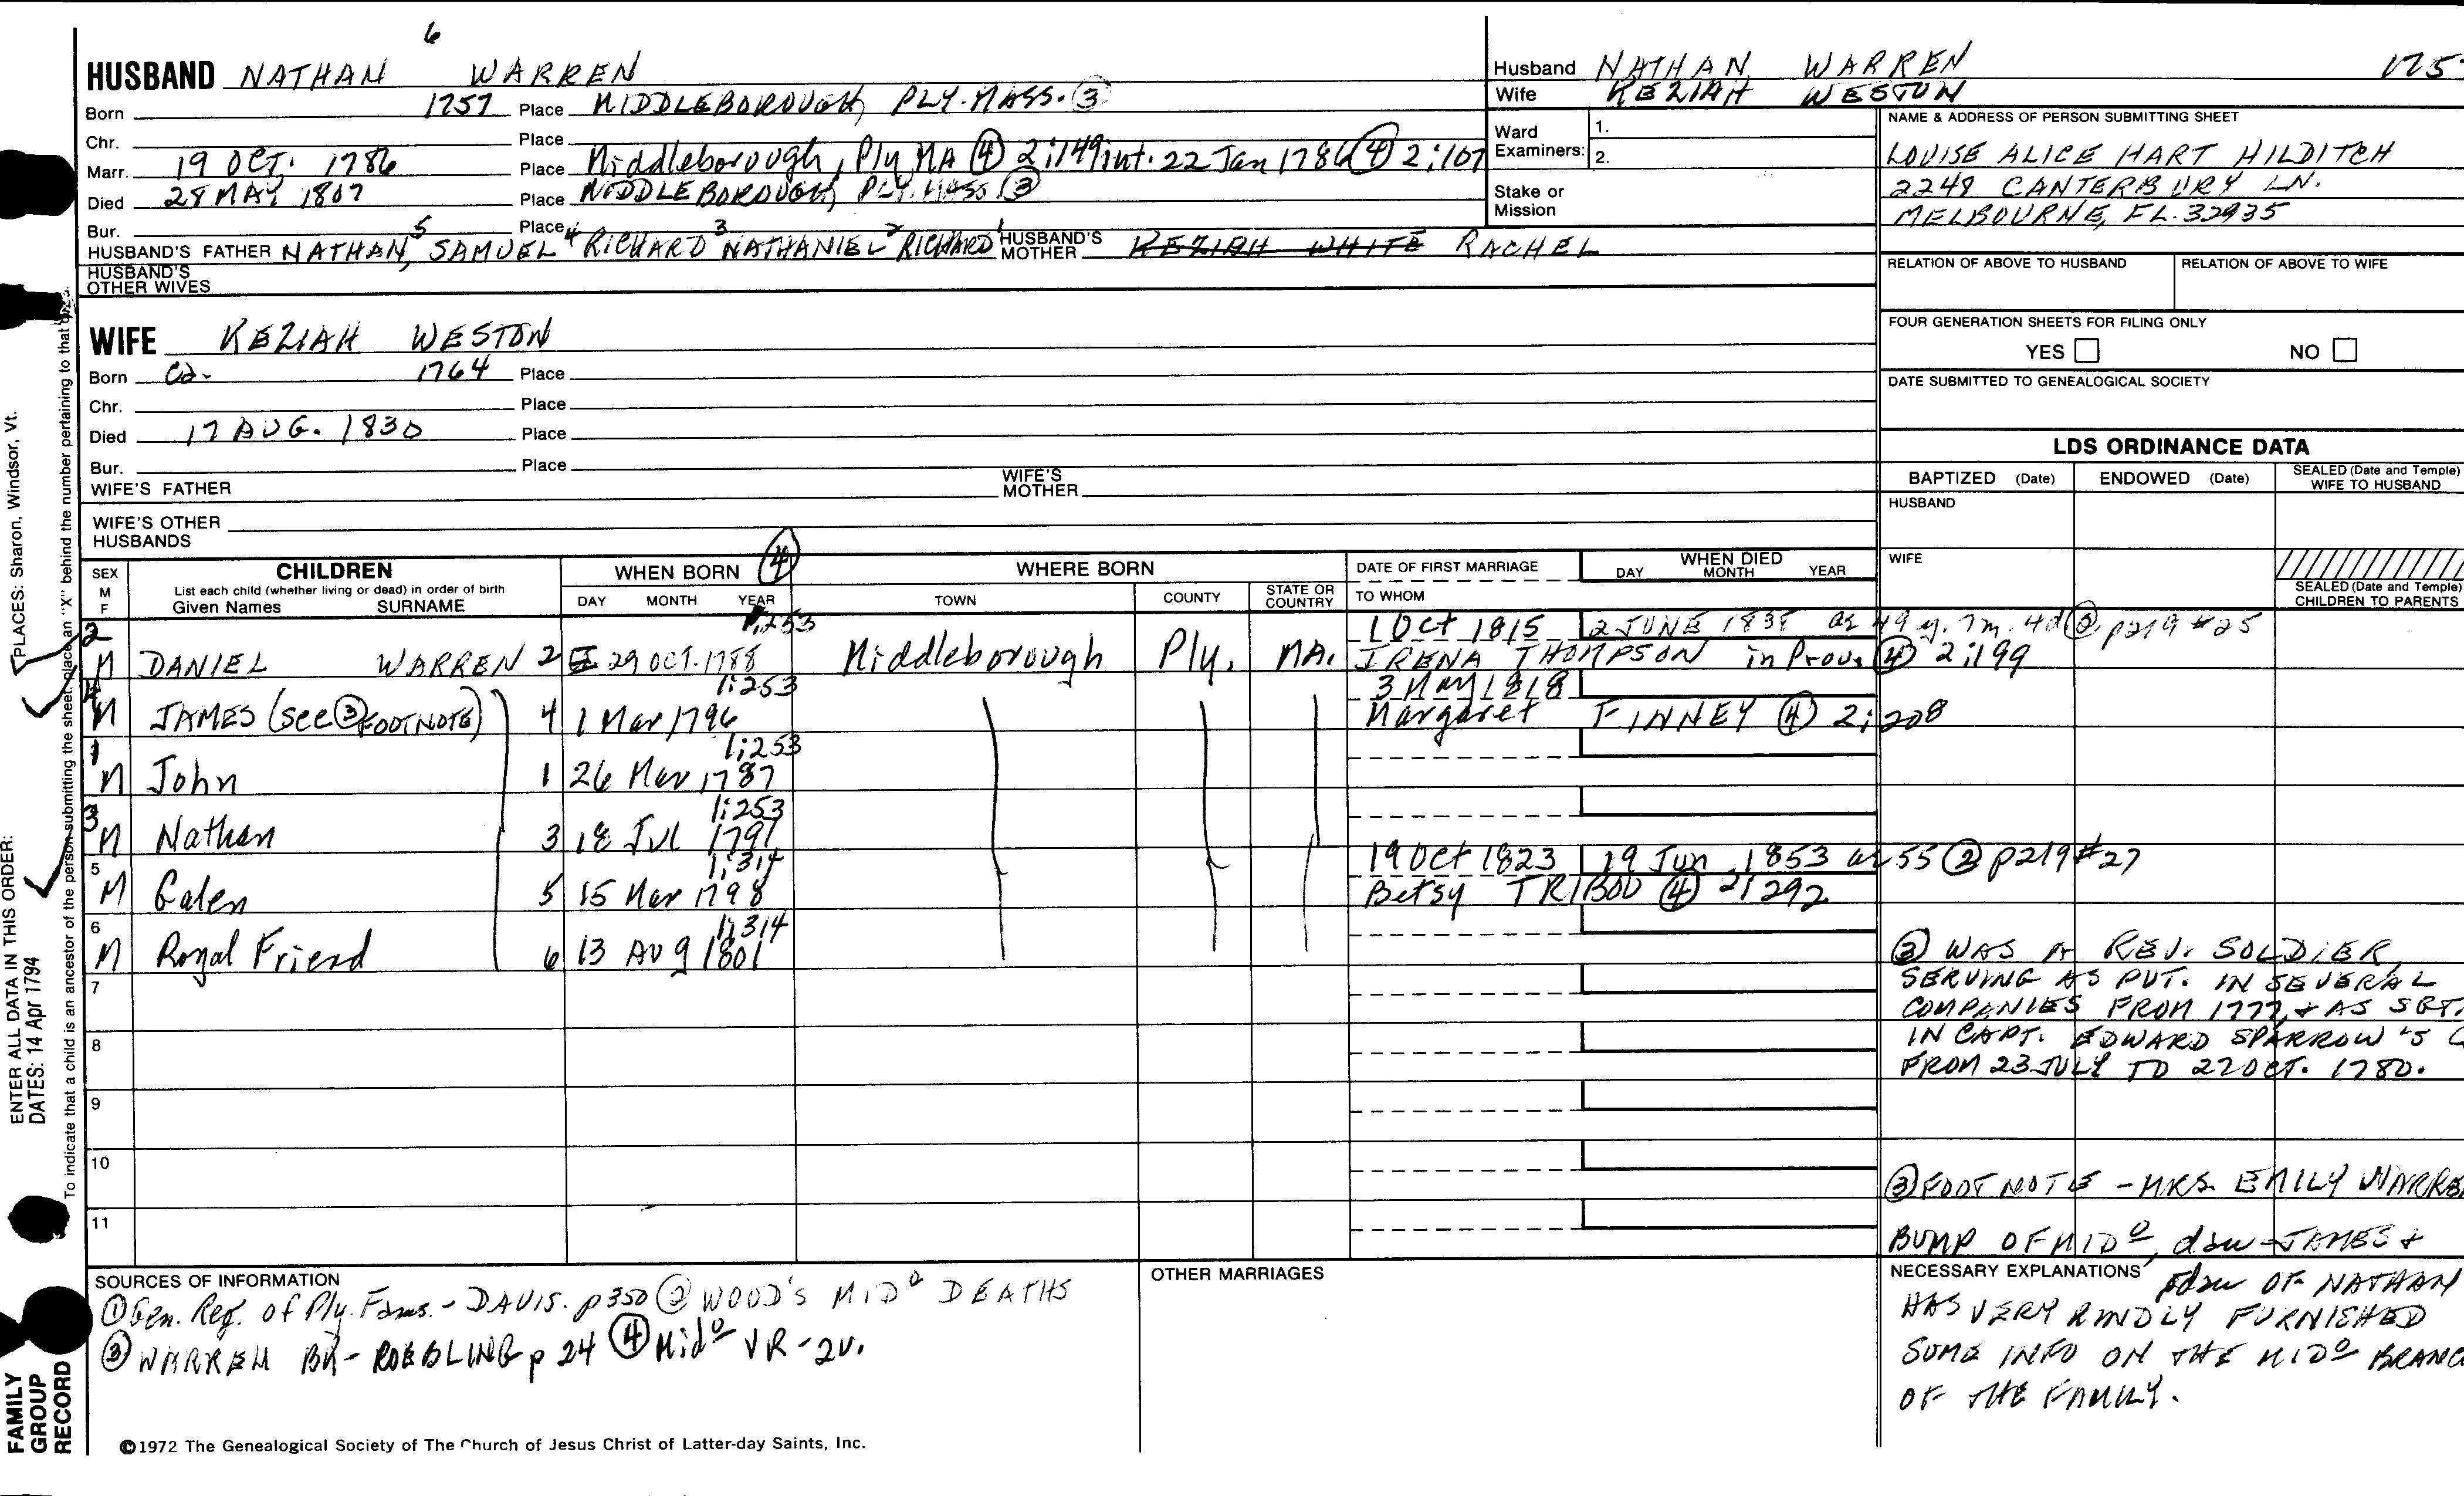 6
HUSBAND NATHAN WARREN
Born 1757 Place MIDDLEBOROUGH, PLY. MASS. ③
Chr. Place
Marr. 19 OCT. 1786 Place Middleborough, Ply, MA ④ 2:149 int. 22 Jan 1786 ④ 2:107
Died 28 MAY 1807 Place MIDDLEBOROUGH, PLY. MASS ③
Bur. Place
HUSBAND'S FATHER NATHAN, 5 SAMUEL 4 RICHARD 3 NATHANIEL 2 RICHARD 1 HUSBAND'S MOTHER KEZIAH WHITE RACHEL
HUSBAND'S OTHER WIVES
WIFE KEZIAH WESTON
Born Ca. 1764 Place
Chr. Place
Died 17 AUG. 1830 Place
Bur. Place
WIFE'S FATHER WIFE'S MOTHER
WIFE'S OTHER HUSBANDS
Husband NATHAN WARREN 175
Wife KEZIAH WESTON
Ward Examiners: 1.
2.
Stake or Mission
NAME & ADDRESS OF PERSON SUBMITTING SHEET
LOUISE ALICE HART HILDITCH
2248 CANTERBURY LN.
MELBOURNE, FL. 32935
RELATION OF ABOVE TO HUSBAND RELATION OF ABOVE TO WIFE
FOUR GENERATION SHEETS FOR FILING ONLY
YES NO
DATE SUBMITTED TO GENEALOGICAL SOCIETY
LDS ORDINANCE DATA
BAPTIZED (Date) ENDOWED (Date) SEALED (Date and Temple) WIFE TO HUSBAND
HUSBAND
WIFE
SEALED (Date and Temple) CHILDREN TO PARENTS
SEX M F CHILDREN WHEN BORN ④ WHERE BORN DATE OF FIRST MARRIAGE WHEN DIED
List each child (whether living or dead) in order of birth
Given Names SURNAME DAY MONTH YEAR TOWN COUNTY STATE OR COUNTRY TO WHOM DAY MONTH YEAR
1:253 1 Oct 1815 2 JUNE 1838 ae 49 y. 7m. 4d ② p219 #25
2 M DANIEL WARREN 2 29 OCT. 1788 Middleborough Ply. MA. IRENA THOMPSON in Prov. ④ 2:199
1:253 3 May 1818
4 M JAMES (see ③ FOOTNOTE) 4 1 Mar 1796 Margaret FINNEY ④ 2:208
1:253
1 M John 1 26 Mar 1787
1:253
3 M Nathan 3 18 Jul 1791
1:314 19 Oct 1823 19 Jun 1853 ae 55 ② p219 #27
5 M Galen 5 15 Mar 1798 Betsy TRIBOU ④ 2:292
1:314
6 M Royal Friend 6 13 Aug 1801
7
8
9
10
11
③ WAS A REV. SOLDIER,
SERVING AS PVT. IN SEVERAL
COMPANIES FROM 1777, + AS SGT.
IN CAPT. EDWARD SPARROW'S C
FROM 23 JULY TO 27 OCT. 1780.
③ FOOTNOTE - MRS. EMILY WARRE
BUMP OF MIDº, dau JAMES +
NECESSARY EXPLANATIONS gdau OF NATHAN
HAS VERY KINDLY FURNISHED
SOME INFO ON THE MIDº BRANC
OF THE FAMILY.
SOURCES OF INFORMATION
① Gen. Reg. of Ply. Fams. - DAVIS. p350 ② WOOD'S MIDº DEATHS
③ WARREN BY - ROEBLING p 24 ④ Midº VR - 2v.
OTHER MARRIAGES
©1972 The Genealogical Society of The Church of Jesus Christ of Latter-day Saints, Inc.
FAMILY GROUP RECORD
ENTER ALL DATA IN THIS ORDER:
DATES: 14 Apr 1794
PLACES: Sharon, Windsor, Vt.
To indicate that a child is an ancestor of the person submitting the sheet, place an "X" behind the number pertaining to that